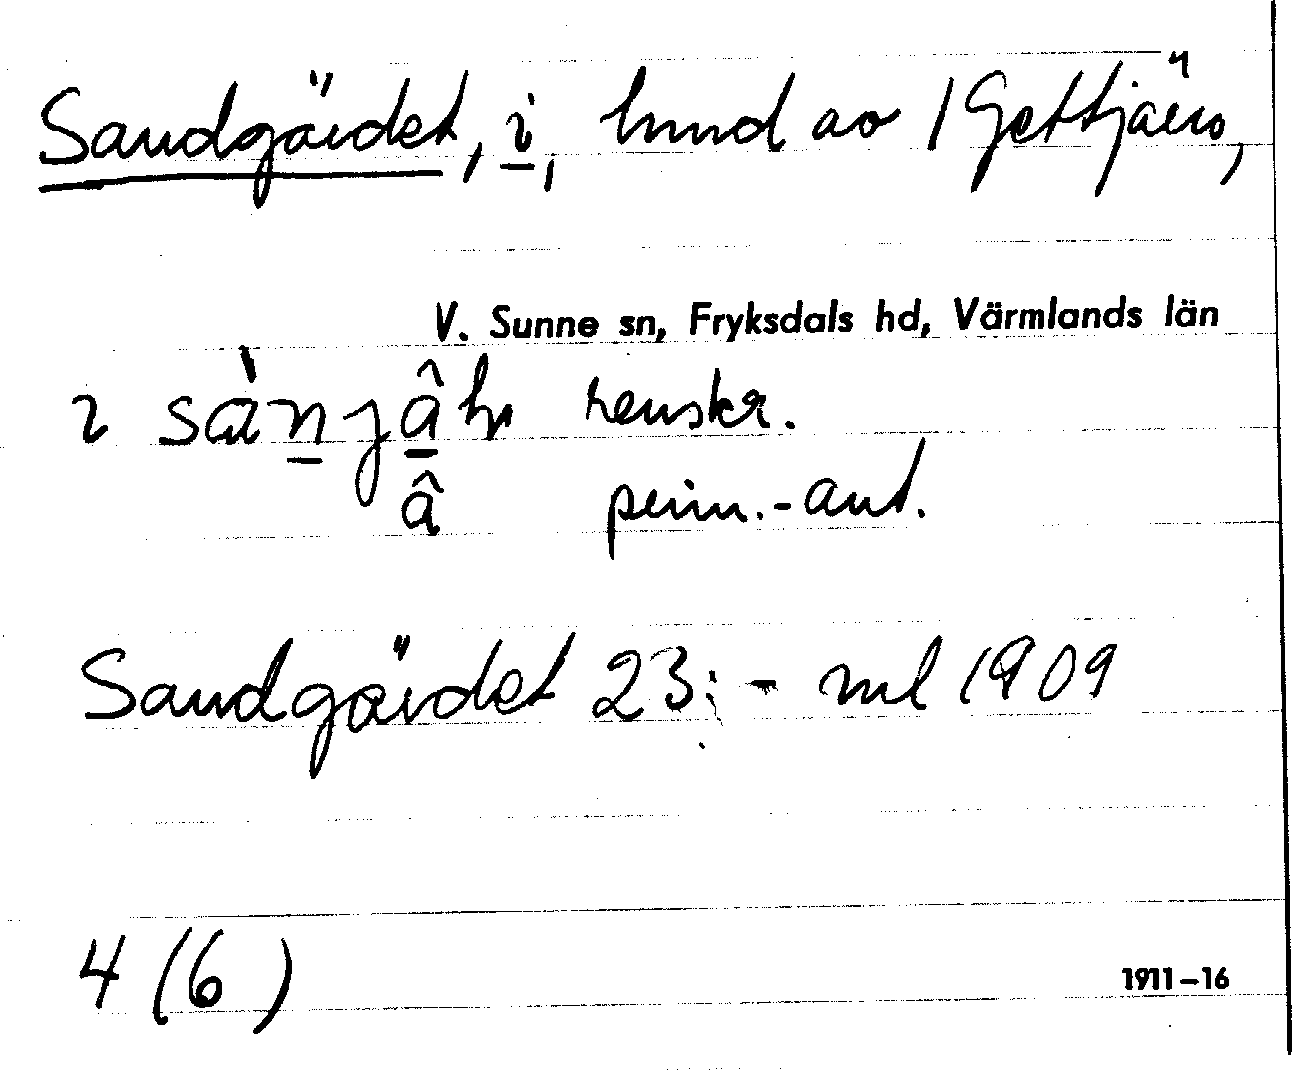 Sandgärdet, i, hmnd av 1 Gettjärn,
V. Sunne sn, Fryksdals hd, Värmlands län
renskr.
â prim.-ant.
Sandgärdet 23:- ml 1909
4 (6)
1911–16